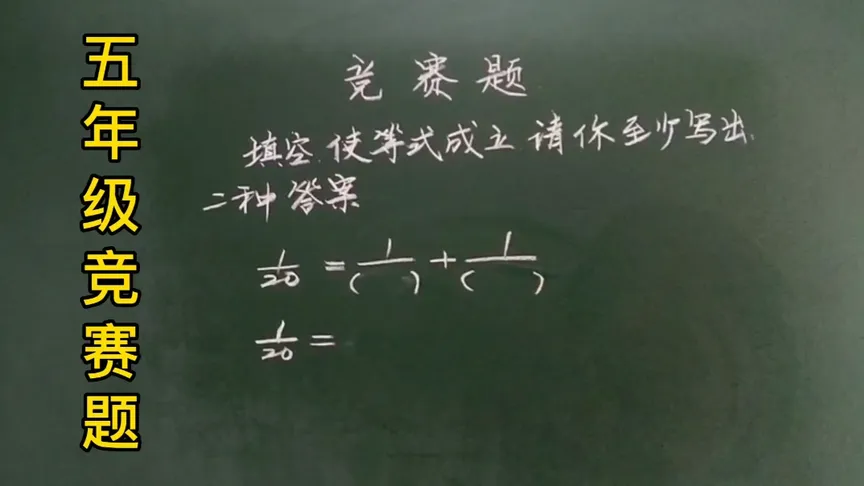 五年级竞赛题
竞赛题
填空.使等式成立.请你至少写出.
二种答案
1/20 = 1/( ) + 1/( )
1/20 =